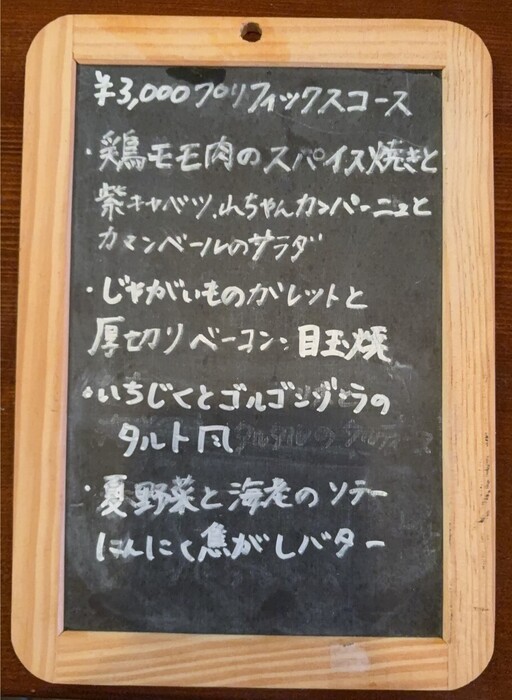 ¥3,000プリフィックスコース
・鶏モモ肉のスパイス焼きと
紫キャベツ、山ちゃんカンパーニュと
カマンベールのサラダ
・じゃがいものガレットと
厚切りベーコン、目玉焼
・いちじくとゴルゴンゾーラの
タルト風
・夏野菜と海老のソテー
にんにく焦がしバター